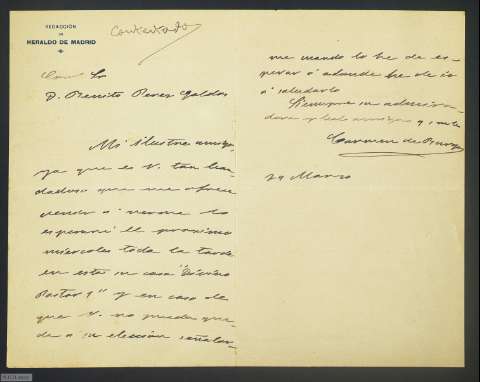 REDACCIÓN
DE
HERALDO DE MADRID
Contestado
Sr
D. Benito Perez Galdos
Mi ilustre amigo
ya que es V. tan bon-
dadoso que me ofrece
venir á verme lo
esperaré el proximo
miercoles toda la tarde
en esta su casa "Divino
Pastor 1" y en caso de
que V. no pueda que-
da á su eleccion señalar-
me cuando lo he de es-
perar ó adonde he de ir
á saludarlo
Siempre su admira-
dora y leal amiga q s m b
Carmen de Burgos
29 Marzo